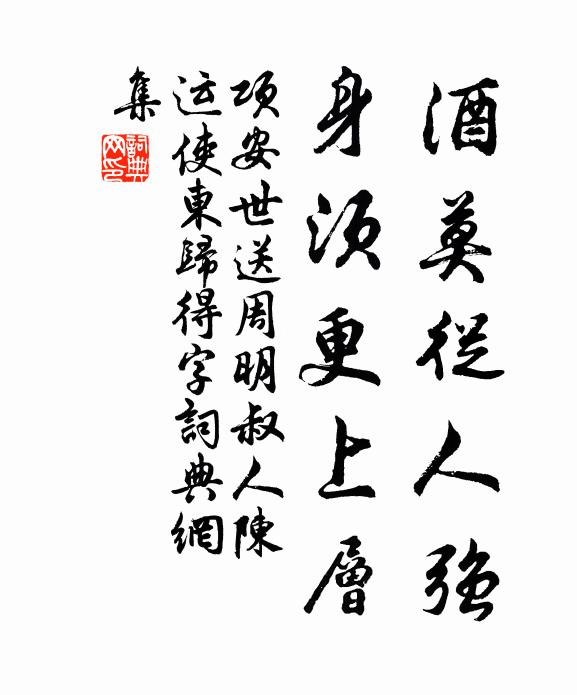 酒莫從人強
身須更上層
項安世送周明叔人陳
运使東歸得字詞典網
集
詞典網印